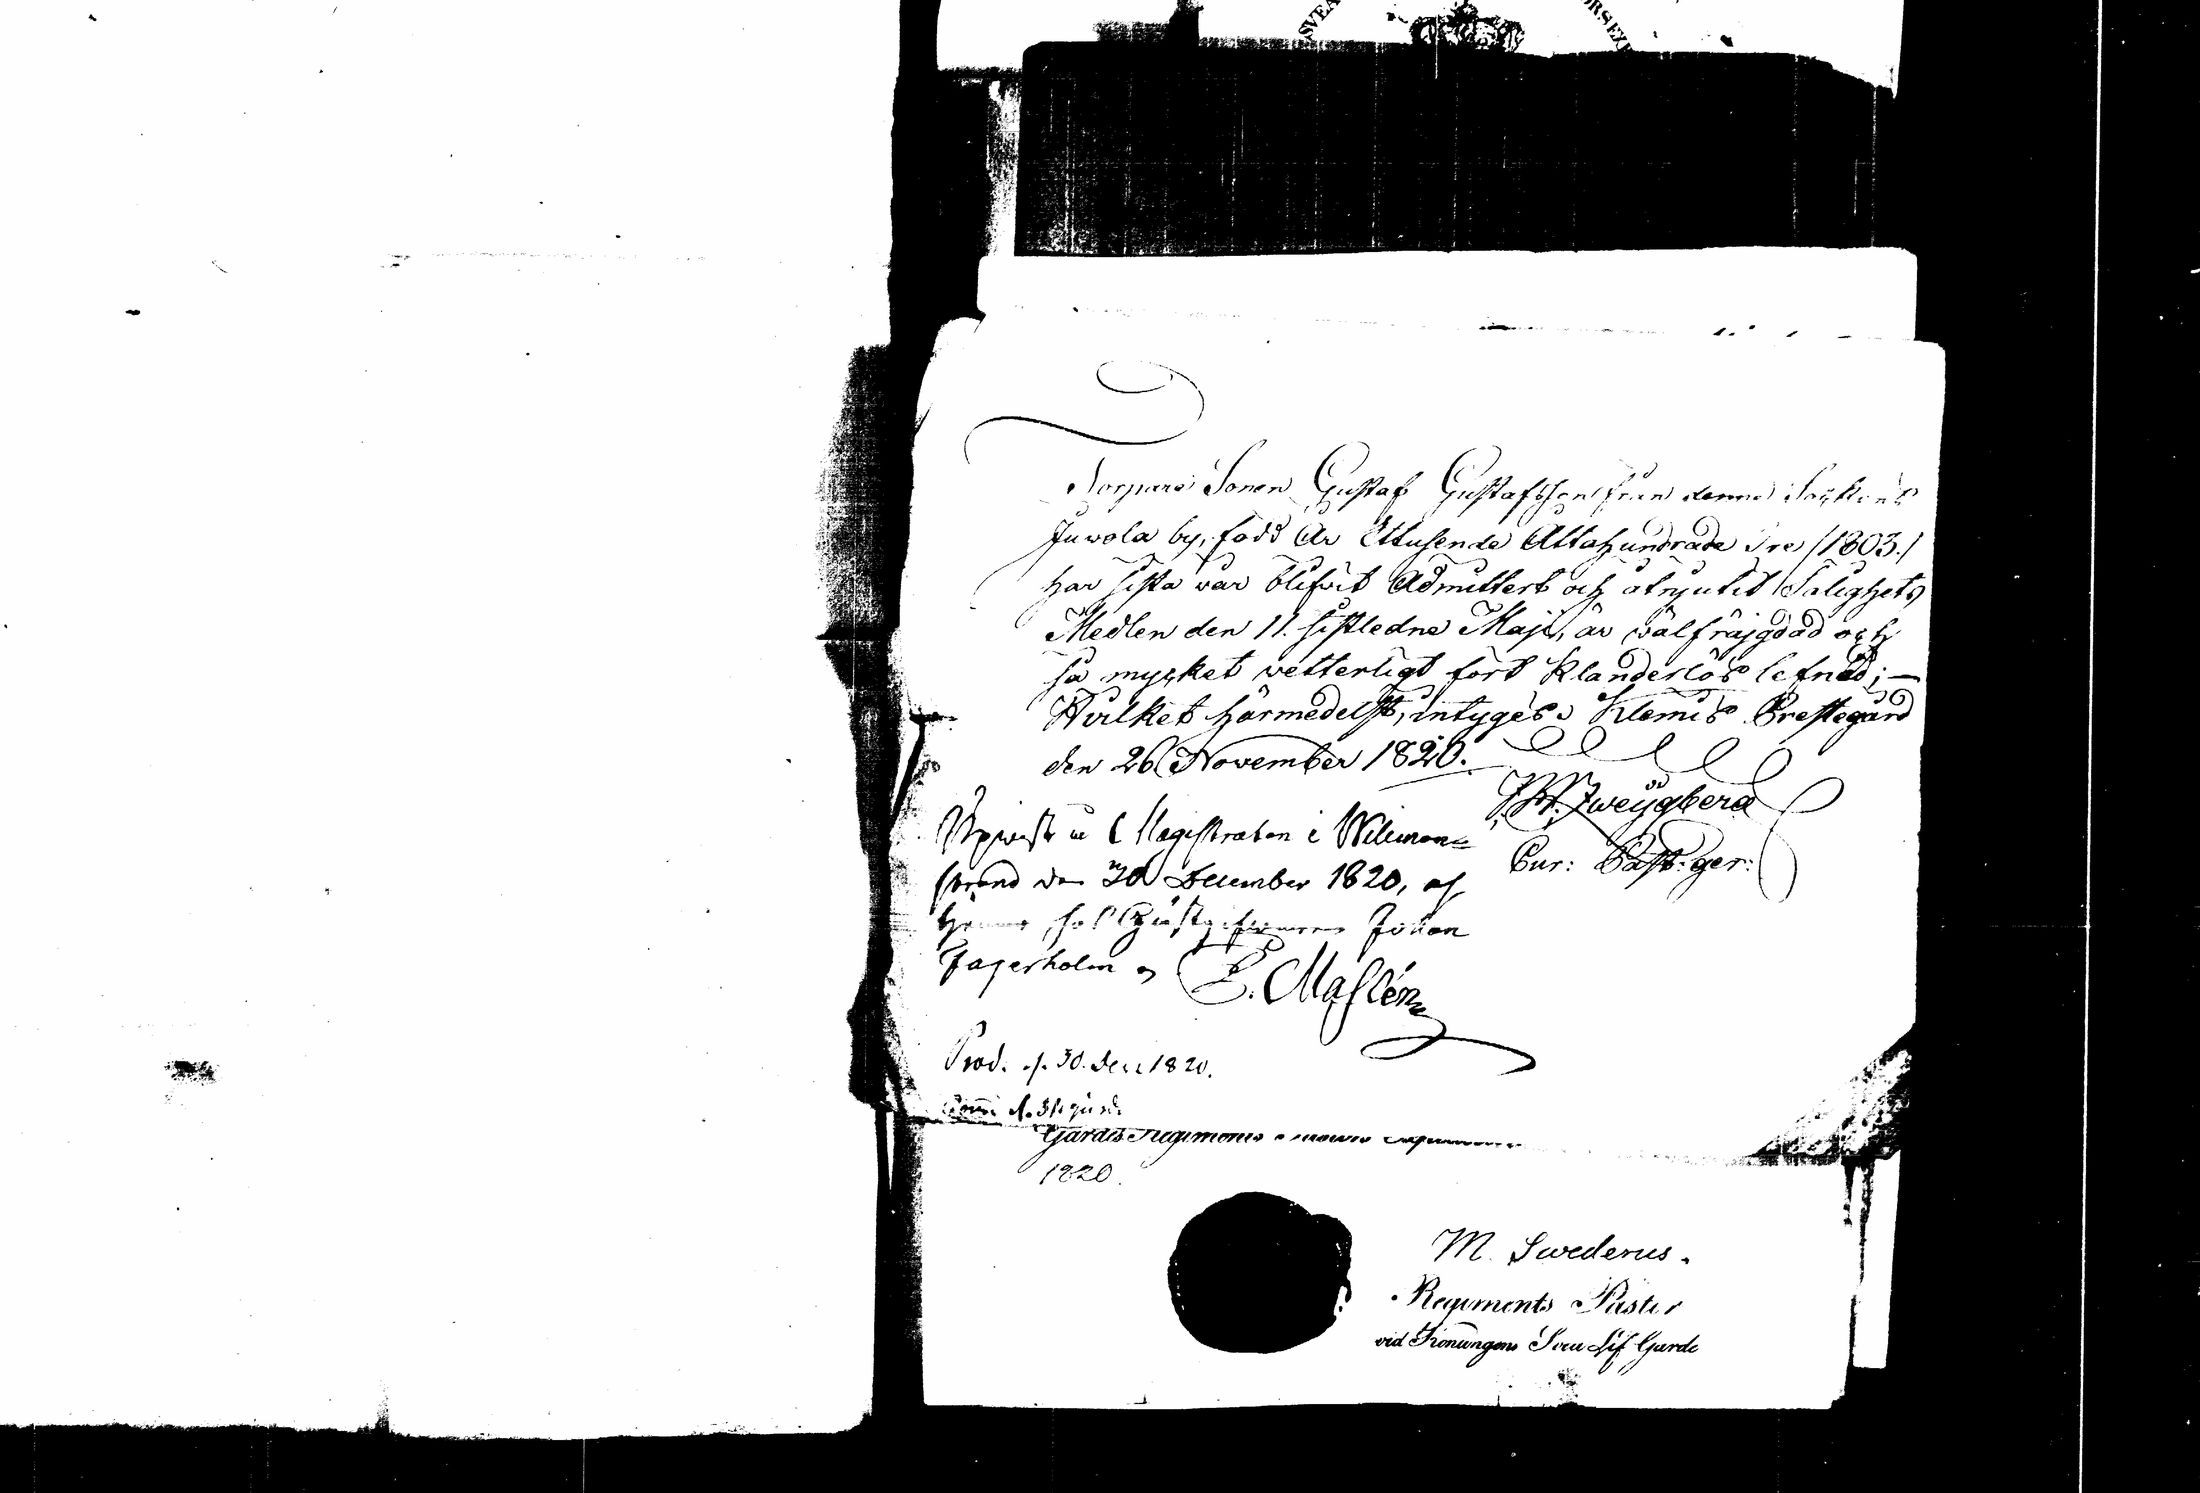 SVEA
ORSEX
Torpare Sonen Gustaf Gustafsson från denna Sockens
Juvola by, född År Ettusende Åttahundrade Tre /1803./
har sista vår blifvit Admitterb och åtnjutit Salighets
Medlen den 11. sistledne Maji, är välfräjgdad och
så mycket vetterligt fört Klanderlös lefnad; —
Hvilket härmedelst, intygès Klemis Prestegård
den 26 November 1820.
J. W. Zweygberg
Cur: Past: ger:
Magistraten i Wilman=
strand den 30 December 1820, af
Gästgifvaren Johan
Fagerholm
E. Maslén
Prod. d. 30. Dec 1820.
Gardes Regimente
1820.
M. Swederus.
Regiments Pastor
vid Konungens Svea Lif Garde